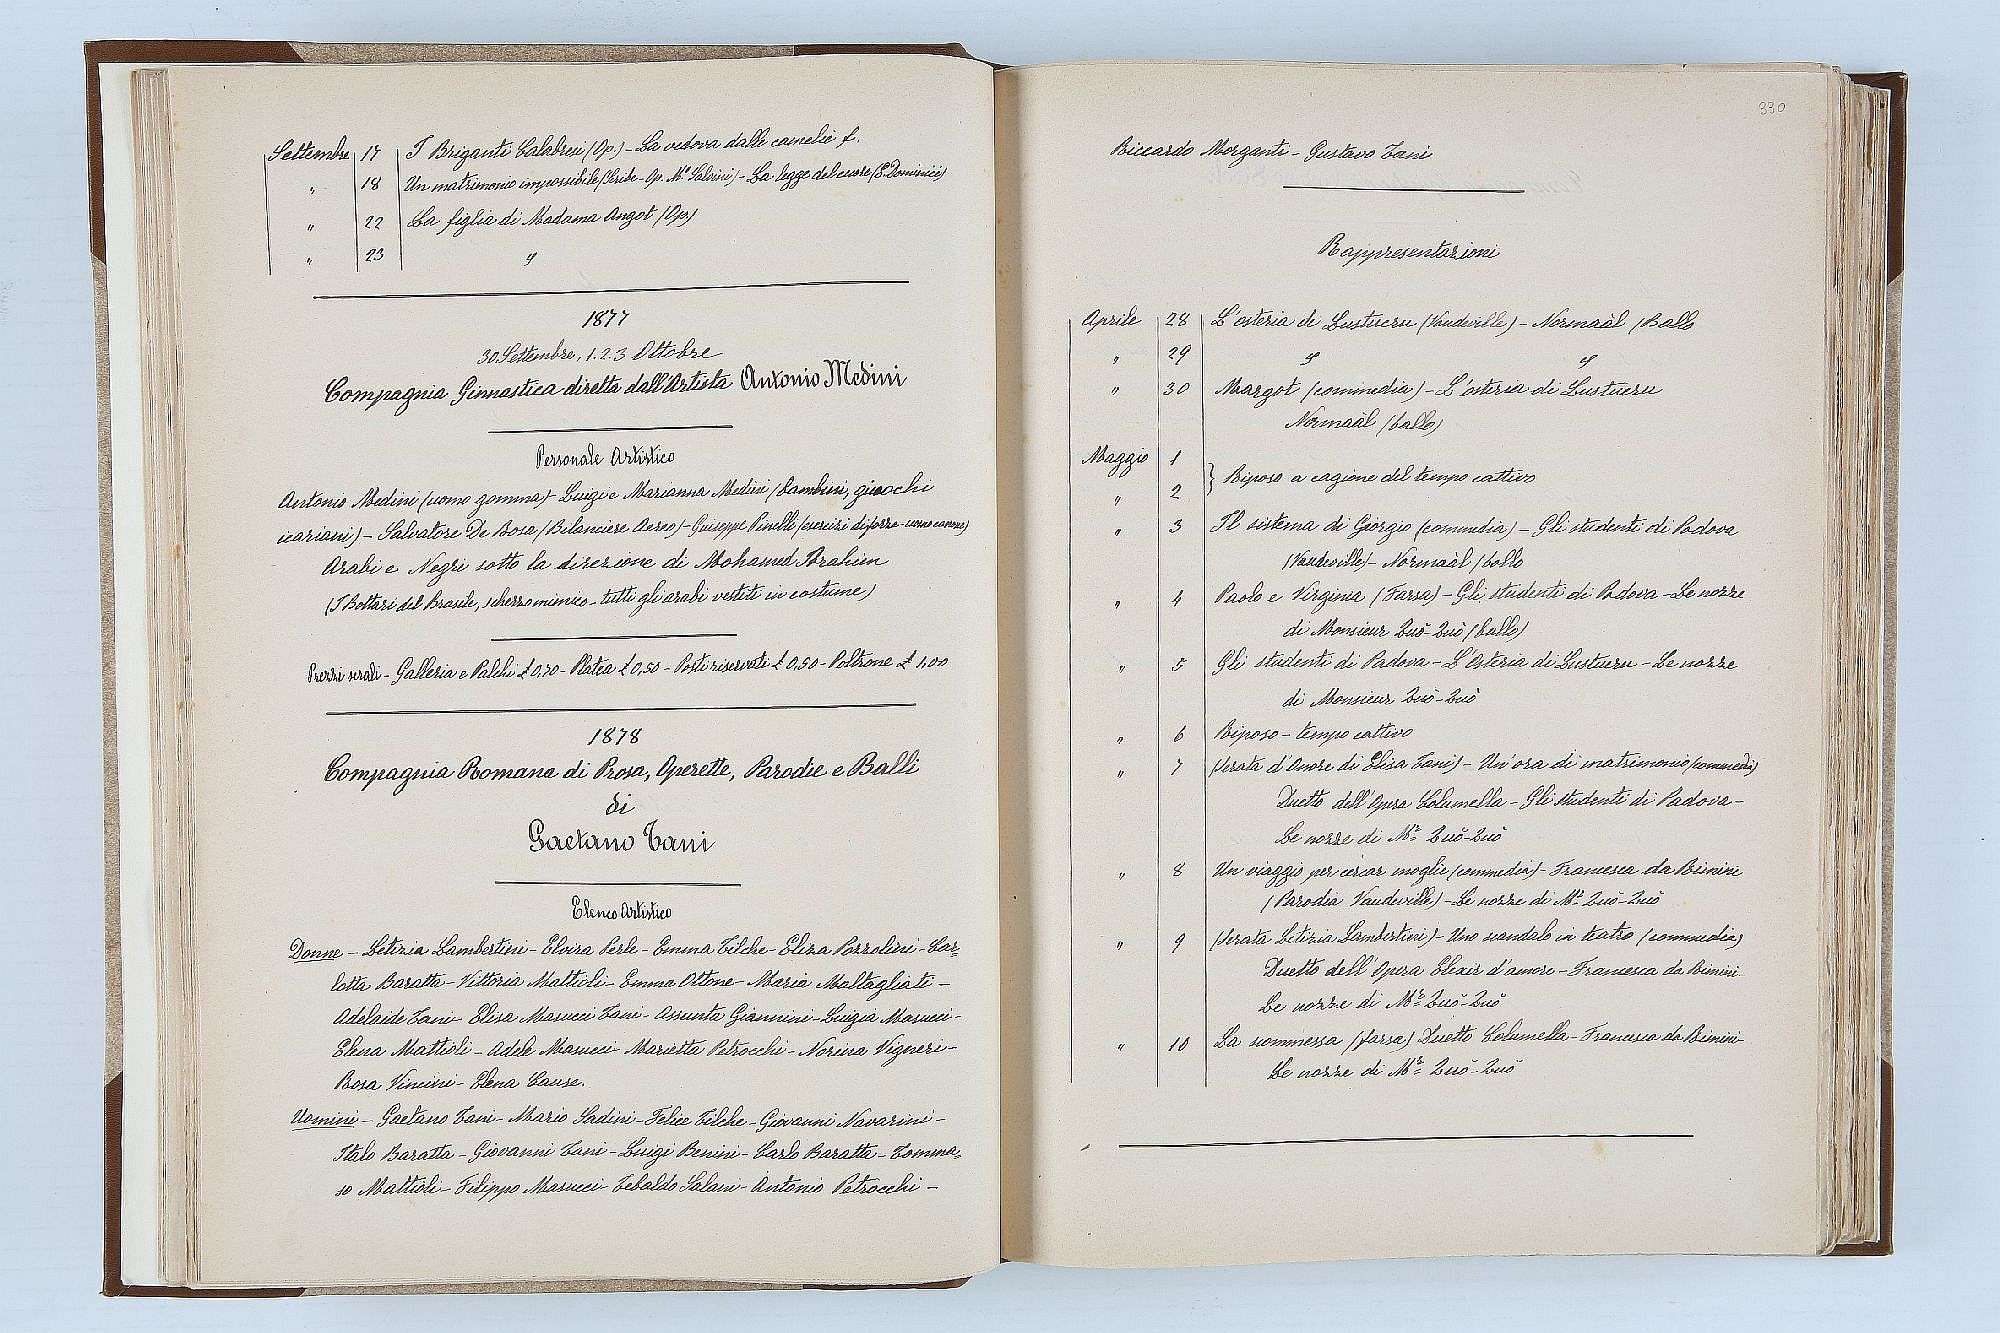 Settembre 17 I Briganti Calabresi (Op.) - La vedova dalle camelie f.
" 18 Un matrimonio impossibile (Scribe - Op. Mº Salvini) - La legge del cuore (E. Dominici)
" 22 La figlia di Madama Angot (Op)
" 23 "
1877
30 Settembre, 1. 2. 3 Ottobre
Compagnia Ginnastica diretta dall'Artista Antonio Medini
Personale Artistico
Antonio Medini (uomo gomma) - Luigi e Marianna Medini (bambini, giuochi
icariani) - Salvatore De Rosa (Bilanciere Aereo) - Giuseppe Pinelli (esercizi di forza - uomo cannone)
Arabi e Negri sotto la direzione di Mohamed Ibrahim
(I Bottari del Brasile, scherzo mimico - tutti gli arabi vestiti in costume)
Prezzi serali - Galleria e Palchi £ 0,70 - Platea £ 0,50 - Posti riservati £ 0,50 - Poltrone £ 1,00
1878
Compagnia Romana di Prosa, Operette, Parodie e Balli
di
Gaetano Tani
Elenco Artistico
Donne - Letizia Lambertini - Elvira Perle - Emma Tilche - Elisa Pozzolini - Car=
lotta Baratta - Vittoria Mattioli - Emma Ottone - Maria Maltagliati -
Adelaide Tani - Elisa Masucci Tani - Assunta Giannini - Luigia Masucci -
Elena Mattioli - Adele Masucci - Marietta Petrocchi - Norina Vigneri -
Rosa Vincini - Elena Cause.
Uomini - Gaetano Tani - Mario Sadini - Felice Tilche - Giovanni Navarini -
Italo Baratta - Giovanni Tani - Luigi Benini - Carlo Baratta - Tomma=
so Mattioli - Filippo Masucci - Tebaldo Salani - Antonio Petrocchi -
330
Riccardo Morganti - Gustavo Tani
Rappresentazioni
Aprile 28 L'osteria di Lustucru (Vaudeville) - Normaàl (Ballo
" 29 " "
" 30 Margot (commedia) - L'osteria di Lustucru
Normaàl (ballo)
Maggio 1
} Riposo a cagione del tempo cattivo
" 2
" 3 Il sistema di Giorgio (commedia) - Gli studenti di Padova
(Vaudeville) - Normaàl (ballo
" 4 Paolo e Virginia (Farsa) - Gli studenti di Padova - Le nozze
di Monsieur Zuò-Zuò (ballo)
" 5 Gli studenti di Padova - L'Osteria di Lustucru - Le nozze
di Monsieur Zuò-Zuò
" 6 Riposo - tempo cattivo
" 7 (Serata d'Onore di Elisa Tani) - Un'ora di matrimonio (commedia)
Duetto dell'Opera Columella - Gli studenti di Padova -
Le nozze di Mr. Zuò-Zuò
" 8 Un viaggio per cercar moglie (commedia) - Francesca da Rimini
(Parodia Vaudeville) - Le nozze di Mr. Zuò-Zuò
" 9 (Serata Letizia Lambertini) - Uno scandalo in teatro (commedia)
Duetto dell'Opera Elixir d'amore - Francesca da Rimini
Le nozze di Mr. Zuò-Zuò
" 10 La scommessa (farsa) Duetto Columella - Francesca da Rimini -
Le nozze di Mr. Zuò-Zuò